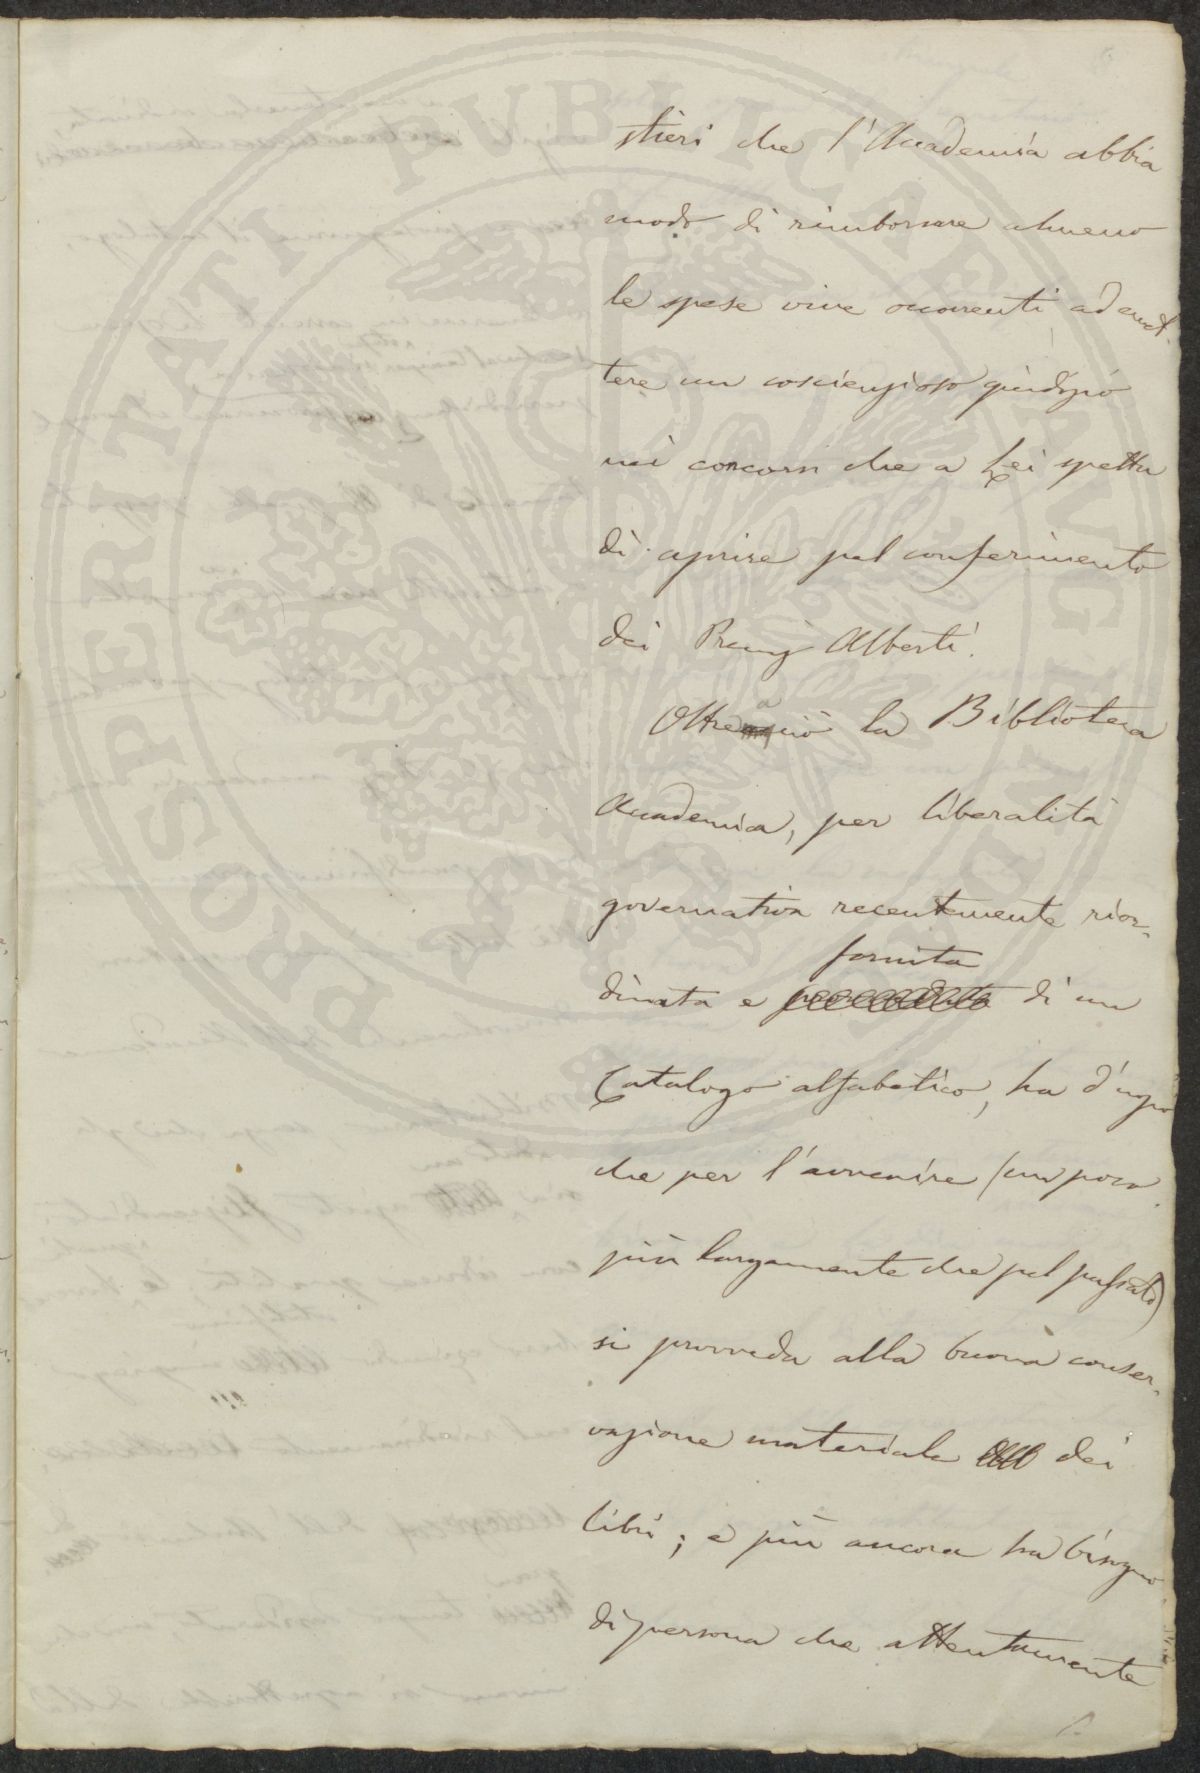 stieri che l'Accademia abbia
modo di rimborsare almeno
le spese vive occorrenti ad emet-
tere un coscienzioso giudizio
nei concorsi che a Lei spetta
di aprire pel conferimento
dei Premj Alberti.
Oltreacciò la Biblioteca
Accademica, per liberalità
governativa recentemente rior-
fornita
dinata e di un
Catalogo alfabetico, ha d'uopo
che per l'avvenire (un poco
più largamente che pel passato)
si provveda alla buona conser-
vazione materiale dei
libri; e più ancora ha bisogno
di persona che attentamente
PROSPERITATI PUBLICAE AVGENDAE